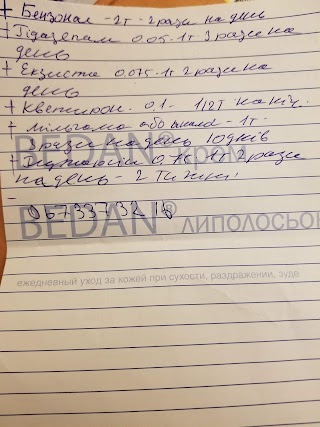 + Бензонал - 2т - 2 рази на день
+ Гідазепам 0.05 - 1т 3 рази на
день
+ Екзиста 0.075 - 1т 2 рази на
день
+ Кветирон 0.1 - 1/2т на ніч.
+ мільгама або - 1т -
3 рази на день 10 днів
+ 0.75 1т 2 рази
BEDAN® крем
на день - 2
-
BEDAN® ЛИПОЛОСЬОН
ежедневный уход за кожей при сухости, раздражении, зуде